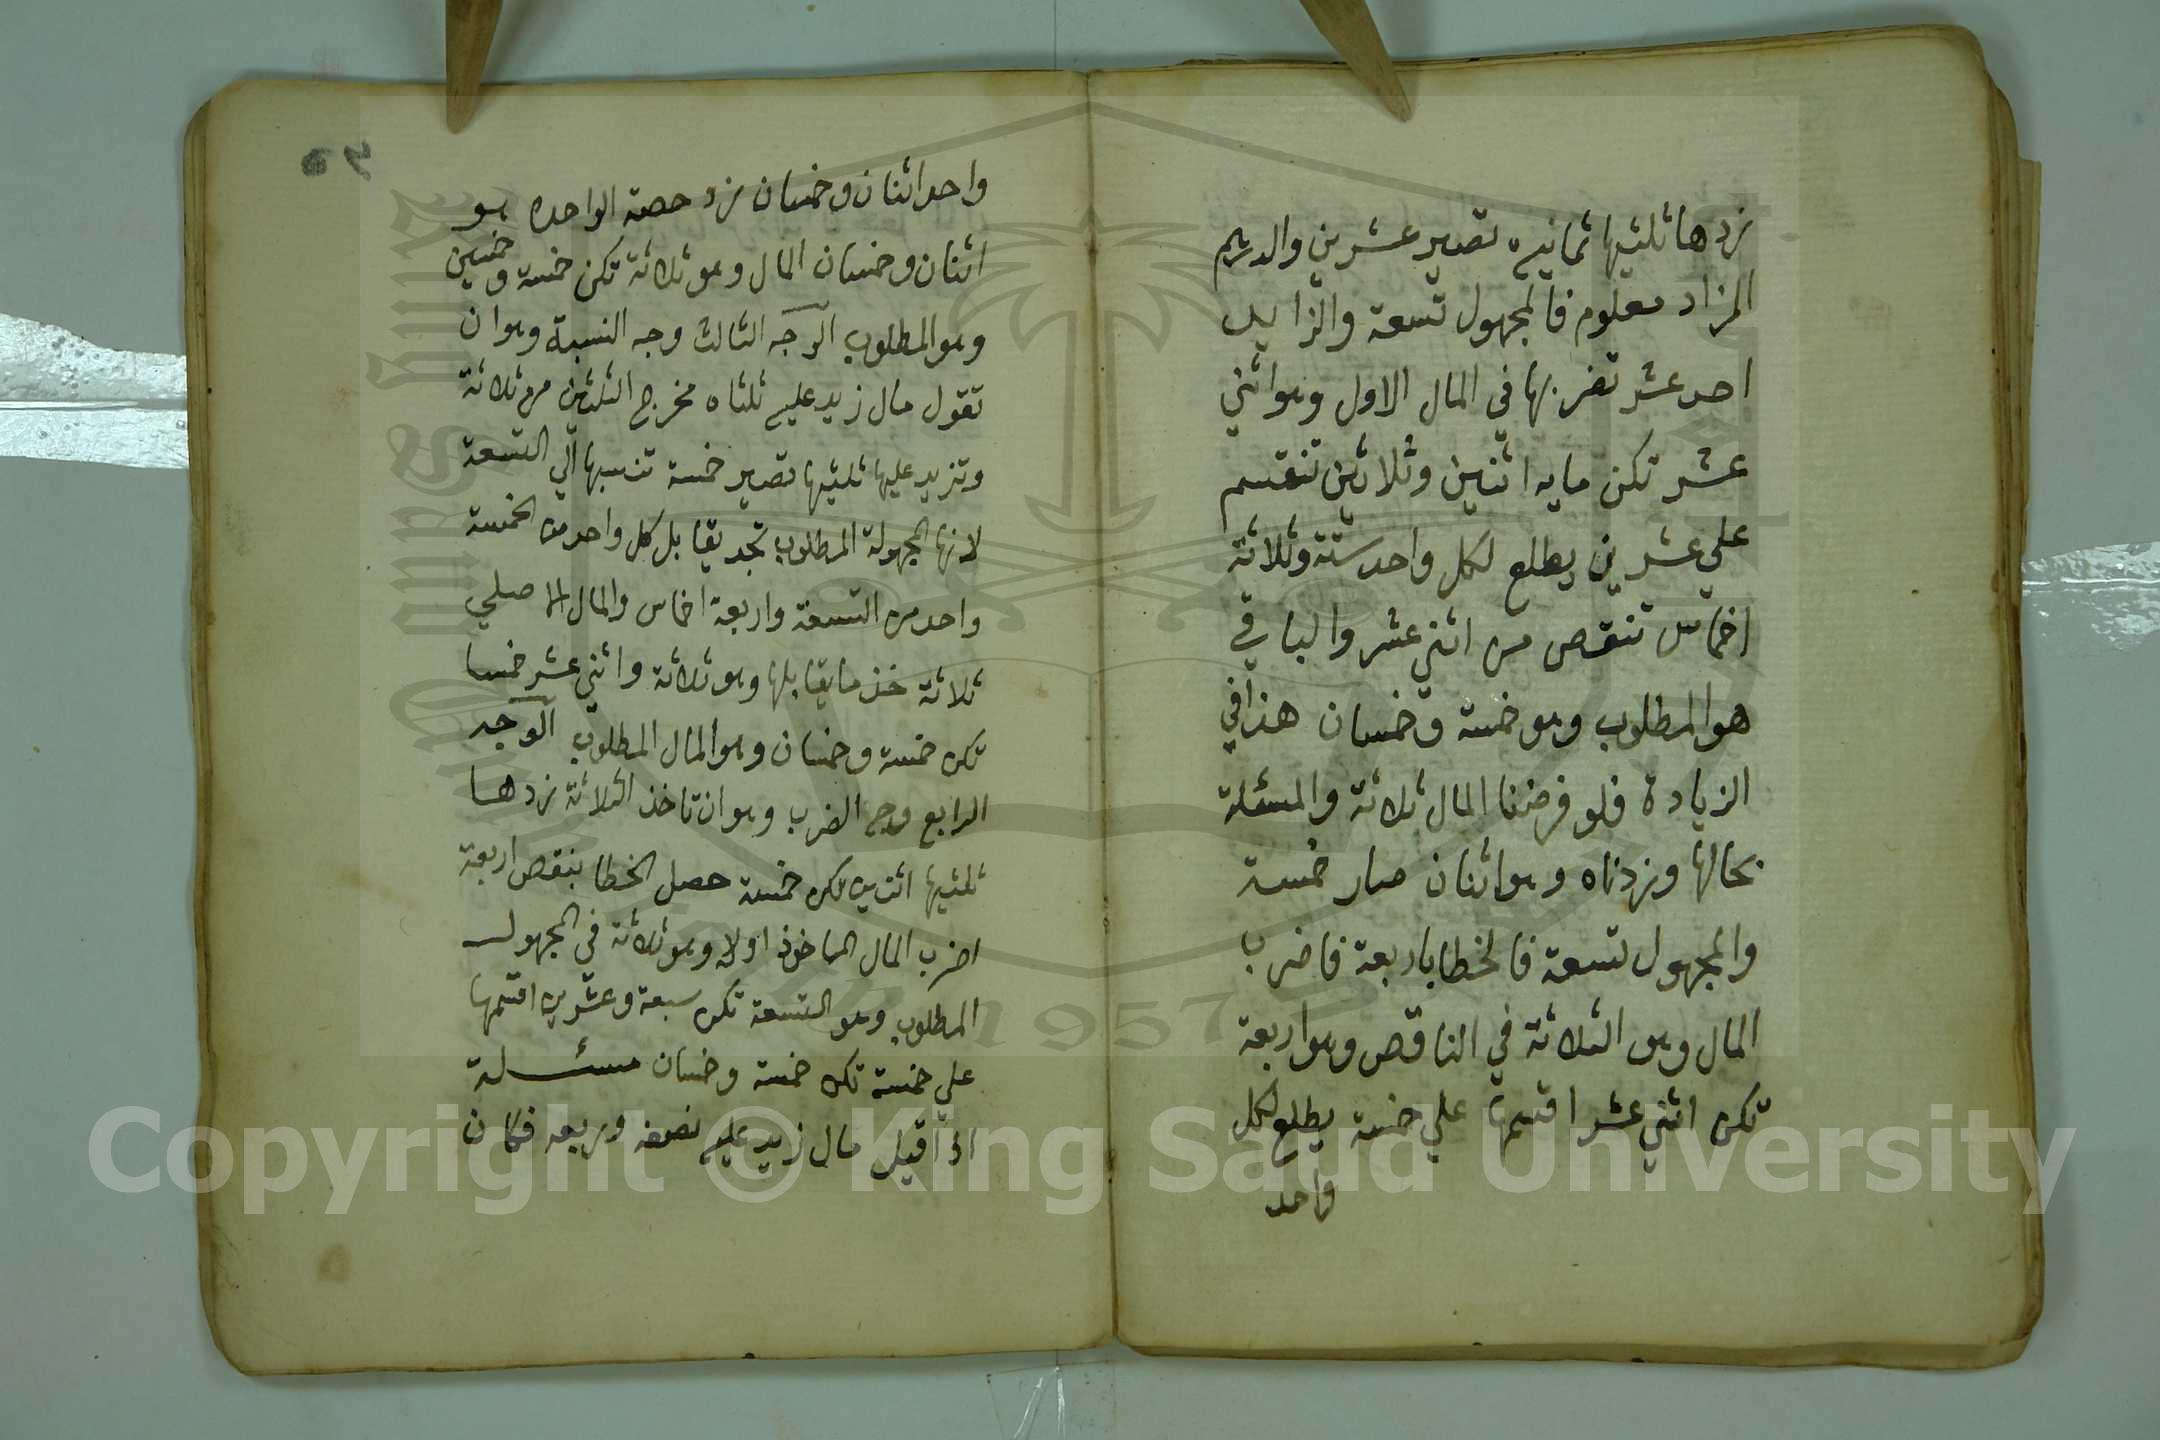 زدها ثلثيها ثمانيه تصير عشرين والدرهم
المزاد معلوم فالمجهول تسعة والزايد
احد عشر تضربها في المال الاول وهو اثني
عشر تكن مايه اثنين وثلاثين تنقسم
علي عشرين يطلع لكل واحد ستة وثلاثة
اخماس تنقص من اثني عشر والباقي
هو المطلوب وهو خمسة وخمسان هذا في
الزيادة فلو فرضنا المال ثلاثة والمسئلة
بحالها وزدناه وهو اثنان صار خمسة
والمجهول تسعة فالخطا باربعة فاضرب
المال وهو الثلاثة في الناقص وهو اربعة
تكن اثني عشر اقسمها علي خمسة يطلع لكل
واحد
واحد اثنان وخمسان زد حصة الواحده هو
اثنان وخمسان المال وهو ثلاثة تكن خمسة وخمسين
وهو المطلوب الوجه الثالث وجه النسبة وهو ان
تقول مال زيد عليه ثلثاه مخرج الثلثين من ثلاثة
وتزيد عليها ثلثيها تصير خمسة تنسبها الي التسعة
لانها المجهولة المطلوب تجد يقابل كل واحد من الخمسة
واحد من التسعة واربعة اخماس والمال الاصلي
ثلاثة خذ ما يقابلها وهو ثلاثة واثني عشر خمسا
تكن خمسة وخمسان وهو المال المطلوب الوجه
الرابع وجه الضرب وهو ان تاخذ الثلاثة زدها
ثلثيها اثنين تكن خمسة حصل الخطا بنقص اربعة
اضرب المال الماخوذ اولا وهو ثلاثة في المجهول
المطلوب وهو التسعة تكن سبعة وعشرين اقسمها
علي خمسة تكن خمسة وخمسان مسئلة
اذا قيل مال زيد عليه نصفه وربعه فكان
Copyright © King Saud University
1957